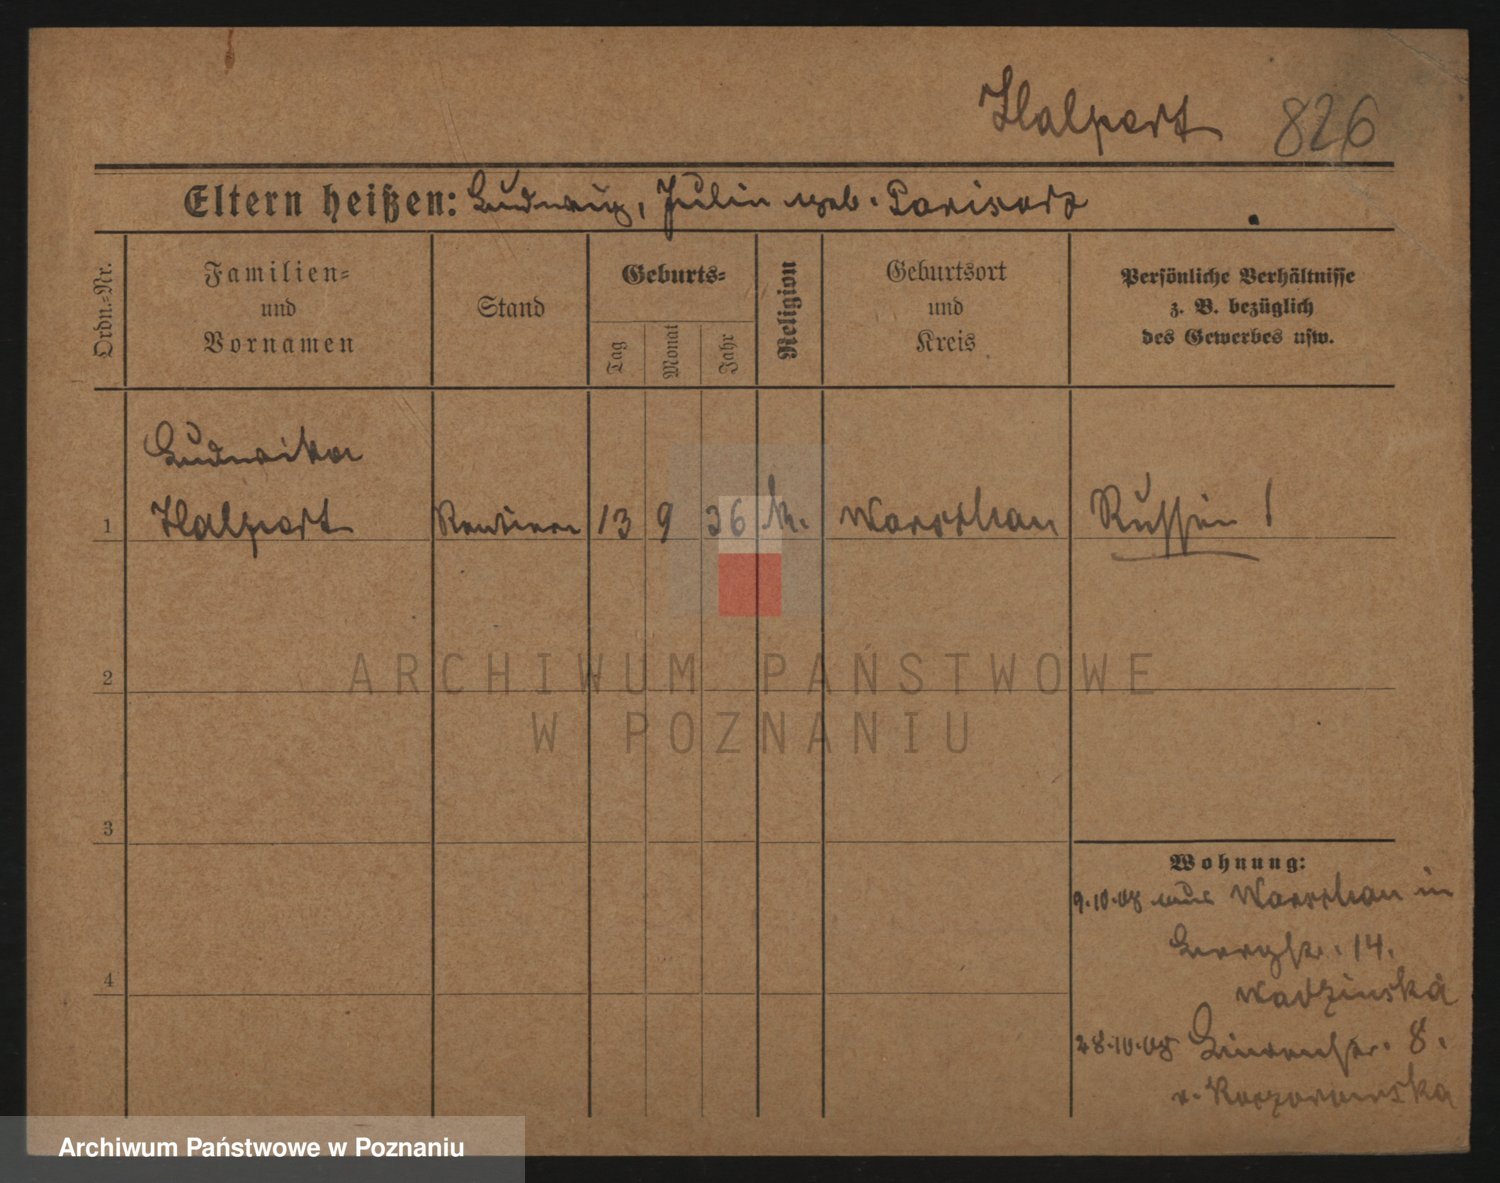 Halpert 826
Eltern heißen: Ludwig, Julia geb.
Ordn.-Nr.
Familien-
und
Vornamen
Stand
Geburts-
Tag
Monat
Jahr
Religion
Geburtsort
und
Kreis
Persönliche Verhältnisse
z. B. bezüglich
des Gewerbes usw.
Ludwika
1 Halpert Rentiere 13 9 36 k. Warschau Russin!
2
ARCHIWUM PAŃSTWOWE
W POZNANIU
3
Wohnung:
9.10.08 aus Warschau in
Bergstr. 14.
Wadzinska
4
28.10.08 8.
v.
Archiwum Państwowe w Poznaniu